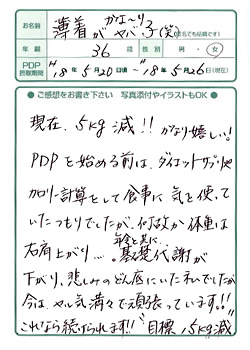 お名前 薄着がかな〜りヤバ子(笑) 匿名でも結構です)
年齢 36歳 性別 男・女
PDP摂取期間 H18年5月20日頃〜H18年5月26日(現在)
●ご感想をお書き下さい 写真添付やイラストもOK●
現在、5kg減!!かなり嬉しい!
PDPを始める前は、ダイエットサプリや
カロリー計算をして食事に気を使って
いたつもりでしたが、何故か体重は
右肩上がり…。年令と共に、基礎代謝が
下がり、悲しみのどん底にいたネいでしたが
今は、ヤル気満々で頑張っています!!
これなら続けられます!!"目標、5kg減"